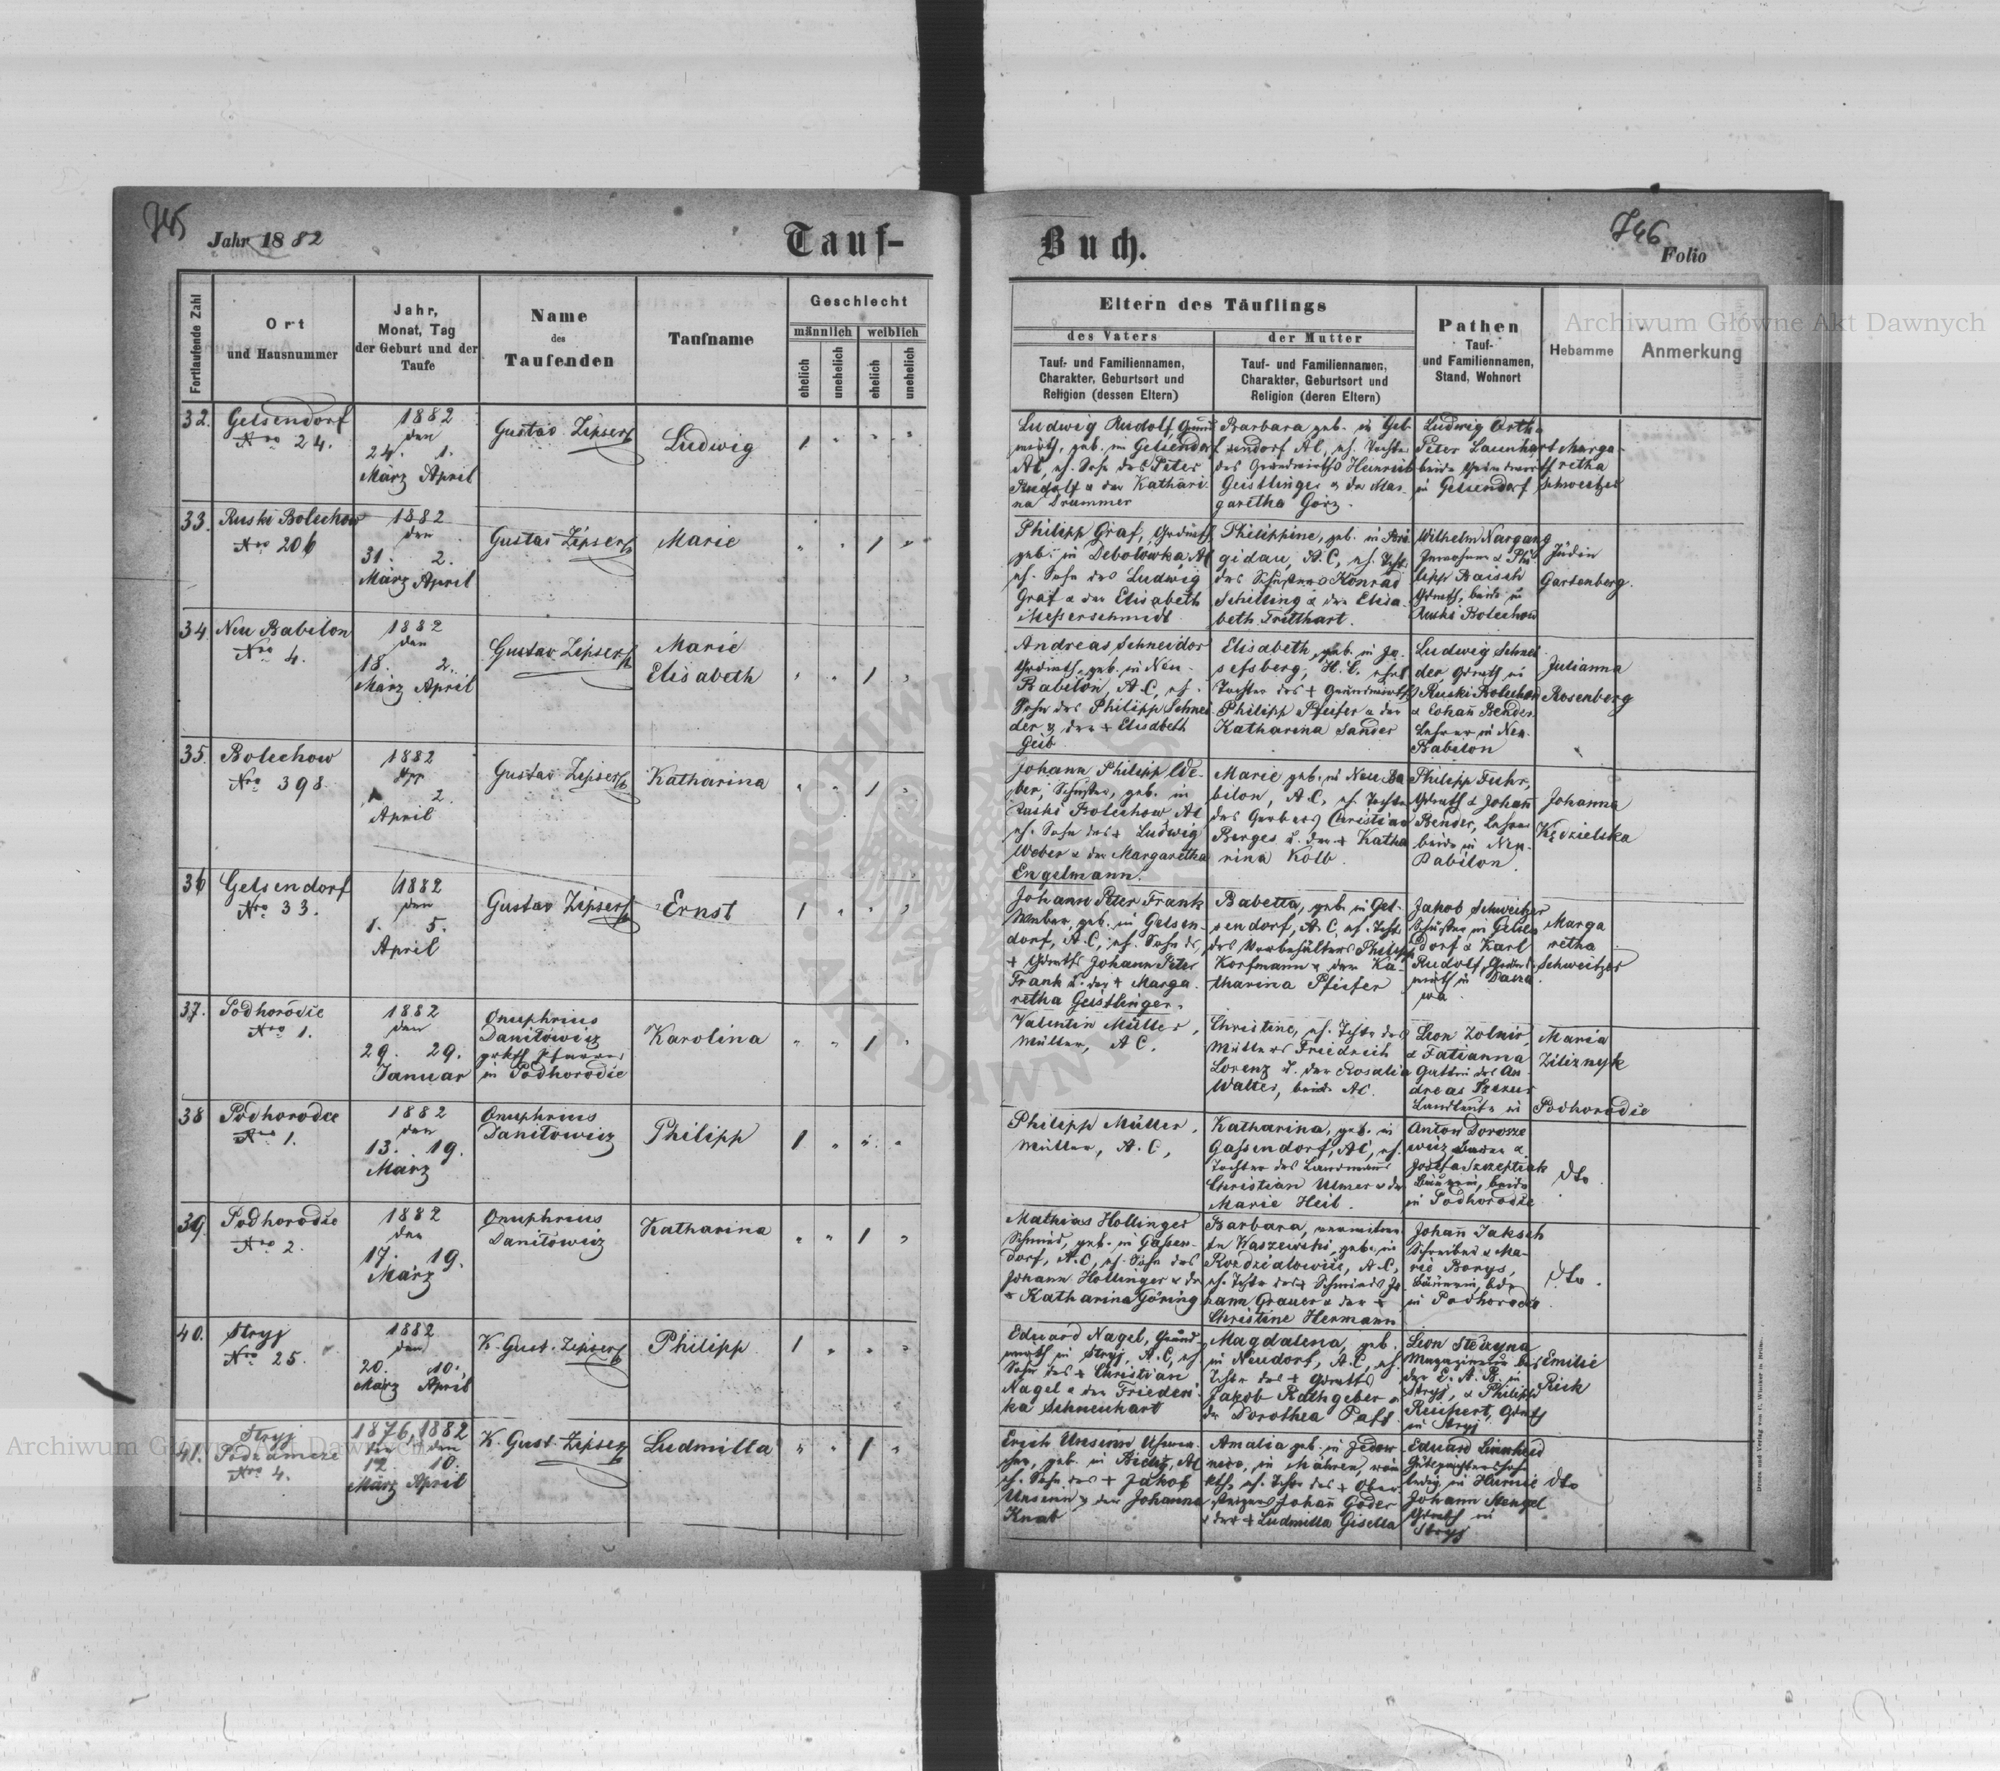 745
Jahr 1882
Tauf-
Buch.
746
Folio
Archiwum Główne Akt Dawnych
Fortlaufende Zahl
Ort
und Hausnummer
Jahr,
Monat, Tag
der Geburt und der
Taufe
Name
des
Taufenden
Taufname
Geschlecht
männlich
weiblich
ehelich
unehelich
ehelich
unehelich
Eltern des Täuflings
des Vaters
Tauf- und Familiennamen,
Charakter, Geburtsort und
Religion (dessen Eltern)
der Mutter
Tauf- und Familiennamen,
Charakter, Geburtsort und
Religion (deren Eltern)
Pathen
Tauf-
und Familiennamen,
Stand, Wohnort
Hebamme
Anmerkung
32.
Gelsendorf
Nro 24.
1882
den
24. 1.
März April
Gustav Zipser
Ludwig
1
Ludwig Rudolf, Grund
wirth, geb. in Gelsendorf
AC, eh. Sohn des Peter
Rudolf & der Kathari
na Drummer
Barbara geb. in Gel
sendorf AC, eh. Tochter
des Grundwirths Heinrich
Geistlinger & der Mar
garetha Görz.
Ludwig Orth &
Peter Launhart
beide Grundwirth
in Gelsendorf
Marga
retha
Schweitzer
33.
Ruski Bolechow
Nro 206
1882
den
31. 2.
März April
Gustav Zipser
Marie
1
Philipp Graf, Grdwirth,
geb. in Debolowka AC
eh. Sohn des Ludwig
Graf & der Elisabeth
Messerschmidt
Philippine, geb. in Bri
gidau, A.C, eh. Tocht.
des Schusters Konrad
Schilling & der Elisa
beth Fritthart.
Wilhelm Nargang
& Phi
lipp Baisch
Grdwrth, beide in
Ruski Bolechow
Jüdin
Gartenberg.
34.
Neu Babilon
Nro 4.
1882
den
18. 2.
März April
Gustav Zipser
Marie
Elisabeth
1
Andreas Schneider
Grdwirth, geb. in Neu-
Babilon, A.C, eh.
Sohn des Philipp Schnei
der & der + Elisabeth
Geib
Elisabeth, geb. in Jo
sefsberg, H.C, ehel
Tochter des + Grundwirths
Philipp Pfeifer & der
Katharina Sander
Ludwig Schnei
der, Grdwrth in
Ruski Bolechow
& Johañ Bender
Lehrer in Neu-
Babilon
Julianna
Rosenberg
35.
Bolechow
Nro 398
1882
den
1. 2.
April
Gustav Zipser
Katharina
1
Johann Philipp We-
ber, Schuster, geb. in
Ruski Bolechow AC
eh. Sohn des + Ludwig
Weber & der Margaretha
Engelmann.
Marie geb. in Neu Ba
bilon, A.C, eh. Tochter
des Gerbers Christian
Berges u. der + Katha
rina Kolb.
Philipp Fuhr,
Grdwrth & Johañ
Bender, Lehrer
beide in Neu-
Babilon.
Johanna
Kędzielska
36
Gelsendorf
Nro 33.
1882
den
1. 5.
April
Gustav Zipser
Ernst
1
Johann Peter Frank
Weber, geb. in Gelsen-
dorf, A.C, eh. Sohn des
+ Grdwrths Johann Peter
Frank u. der + Marga
retha Geistlinger.
Babetta, geb. in Gel-
sendorf, A.C, eh. Tocht.
des Vorbehälters Philipp
Korfmann & der Ka-
tharina Pfeifer
Jakob Schweitzer
Schuster in Gelsen
dorf & Karl
Rudolf, Grund-
wirth in Dasza
wa
Marga
retha
Schweitzer
37.
Podhorodie
Nro 1.
1882
den
29. 29.
Januar
Onuphrius
Danilowicz
gr kth Pfarrer
in Podhorodie
Karolina
1
Valentin Müller,
Müller, AC.
Christine, eh. Tocht des
Müllers Friedrich
Lorenz u. der Rosalia
Walter, beide AC.
Leon Zolnir,
& Tatianna
Gattin des An-
dreas
Landleute in
Podhorodie
Maria
Zilizniyk
38
Podhorodce
Nro 1.
1882
den
13. 19.
März
Onuphrius
Danilowicz
Philipp
1
Philipp Müller,
Müller, A.C,
Katharina, geb. in
Gassendorf, AC, eh.
Tochter des Landmanns
Christian Ulmer & der
Marie Heib.
Anton Dorosze
wicz, Bauer &
Josefa Szczeptiak
Bäuerin, beide
in Podhorodie
dto
39.
Podhorodie
Nro 2.
1882
den
17. 19.
März
Onuphrius
Danilowicz
Katharina
1
Mathias Hollinger
Schmied, geb. in Gassen-
dorf, A.C, eh. Sohn des
Johann Hollinger & der
+ Katharina Göring
Barbara, verwitwe
te Waszewski, geb. in
Rozdzialowice, A.C,
eh. Tocht des + Schmieds Jo
hann Grauer & der +
Christine Hermann
Johañ Jaksch
Schreiber & Ma-
rie Borys,
Bäuerin, bde
in Podhorodie
dto.
40.
Stryj
Nro 25.
1882
den
20. 10.
März April
K. Gust. Zipser
Philipp
1
Eduard Nagel, Grund
wirth in Stryj, A.C, eh
Sohn des + Christian
Nagel & der Friederi
ka Schneukart
Magdalena, geb.
in Neudorf, A.C, eh.
Tocht des + Grdwrths
Jakob Rathgeber &
der Dorothea Pass
Leon Steczyna
Magazineur bei
der E. A. B. in
Stryj, & Philipp
Reupert, Grdwrth
in Stryj
Emilie
Rick
41.
Stryj
Podzamcze
Nro 4.
1876, 1882
den den
12. 10.
März April
K. Gust. Zipser
Ludmilla
1
Erich Unsinn Uhrma-
cher, geb. in Bielitz, AC
eh. Sohn des + Jakob
Unsinn & der Johanna
Knab
Amalia geb. in Jedow
nice, in Mähren, röm
kth, eh. Tocht des + Ober
steigers Johañ Goder
& der + Ludmilla Gisella
Eduard Linnheid
ledig in Hurnie
Johann Stengel
Grdwrth in
Stryj
dto
Archiwum Główne Akt Dawnych